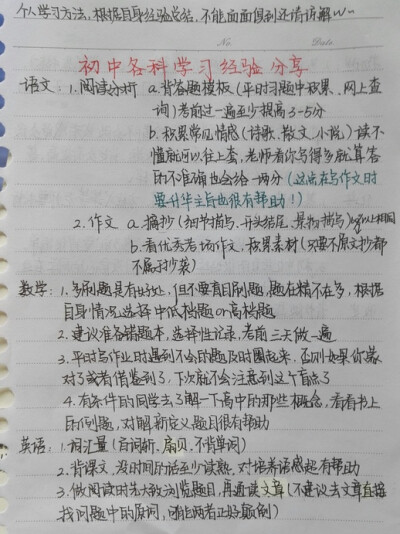 个人学习方法,根据自身经验总结,不能面面俱到还请谅解~
No. Date.
初中各科学习经验分享
语文:1.阅读分析 a.背答题模板(平时习题中积累、网上查
询)考前过一遍至少提高3-5分
b.积累常见情感(诗歌、散文、小说)读不
懂就可以往上套,老师看你写得多就算答
的不准确也会给一两分(这点在写作文时
要升华主旨也很有帮助!)
2.作文 a.摘抄(细节描写、开头结尾、景物描写)
b.看优秀考场作文、积累素材(只要不原文抄都
不属于抄袭)
数学:1.多刷题是有好处,但不要盲目刷题,题在精不在多,根据
自身情况选择中低档题or高档题
2.建议准备错题本,选择性记录,考前三天做一遍
3.平时写作业时遇到不会的题及时圈起来,否则如果你蒙
对了或者借鉴到了,下次就不会注意到这个盲点了
4.有条件的同学去了解一下高中的那些概念,看看书上
的例题,对解新定义题目很有帮助
英语:1.词汇量(百词斩、扇贝、不背单词)
2.背课文,没时间的话至少读熟,对培养语感超有帮助
3.做阅读时先大致浏览题目,再通读文章(不建议去文章直接
找问题中的原词,可能两者正好颠倒)